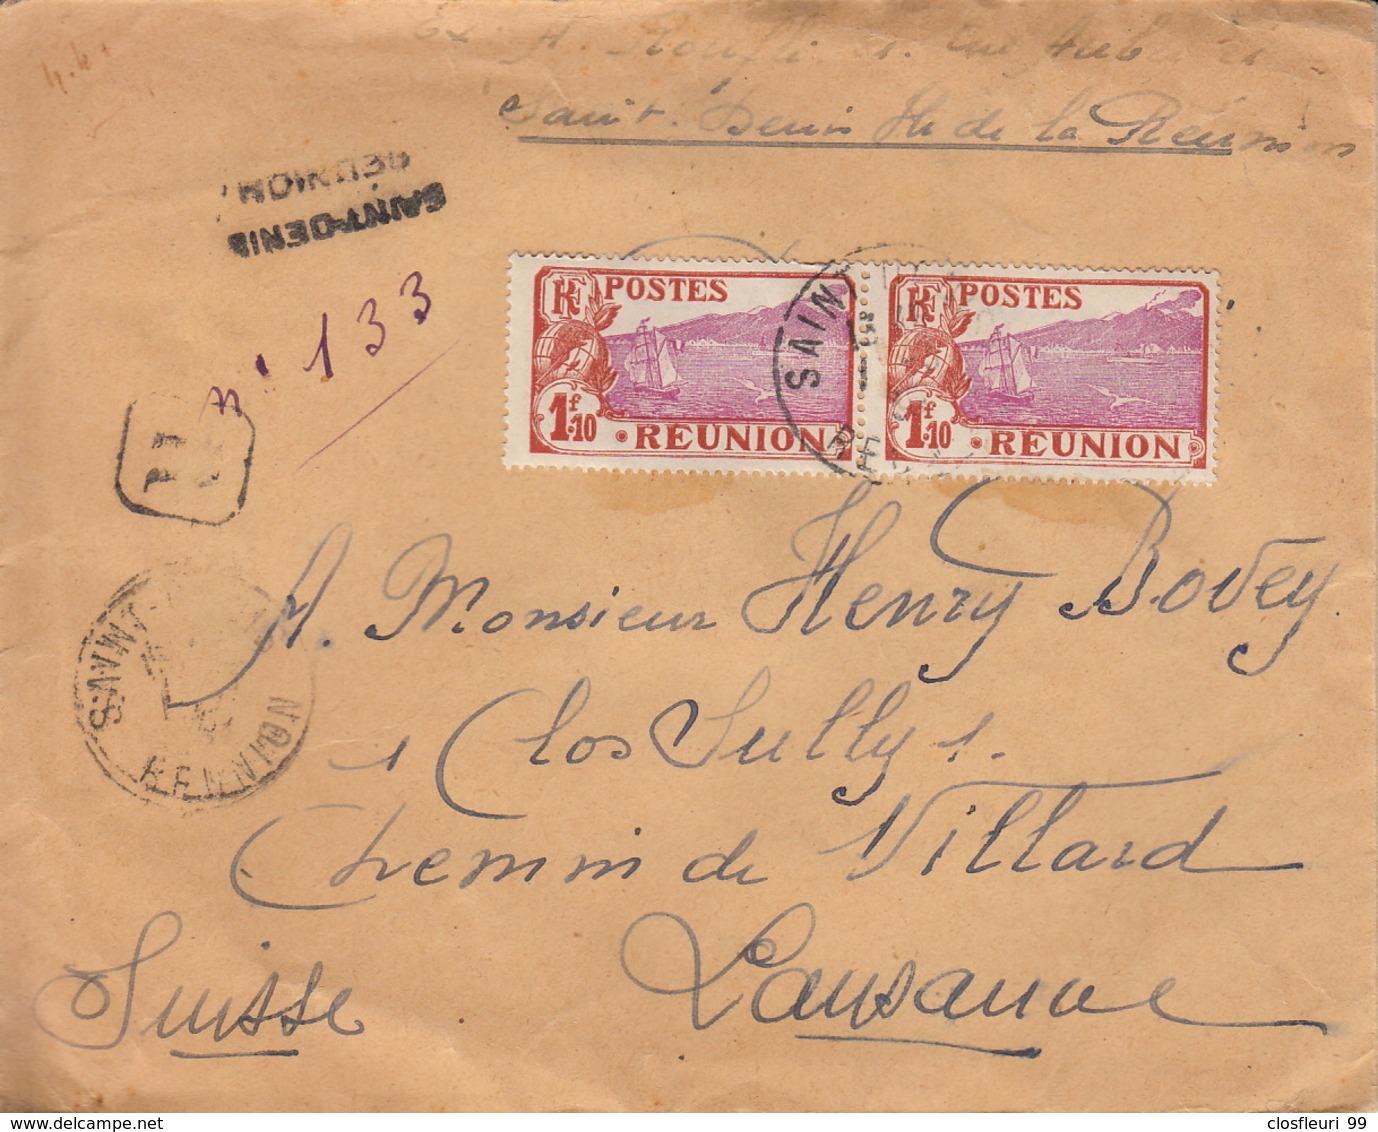 Ex. A.
Saint. Denis Ile de la Réunion
SAINT-DENIS
RÉUNION
n° 133
R
RF POSTES
1f.10
RÉUNION
RF POSTES
1f.10
RÉUNION
SAIN
RÉUNION
A. Monsieur Henry Bovey
Clos Sully
Chemin de Villard
Lausanne
Suisse
closfleuri 99